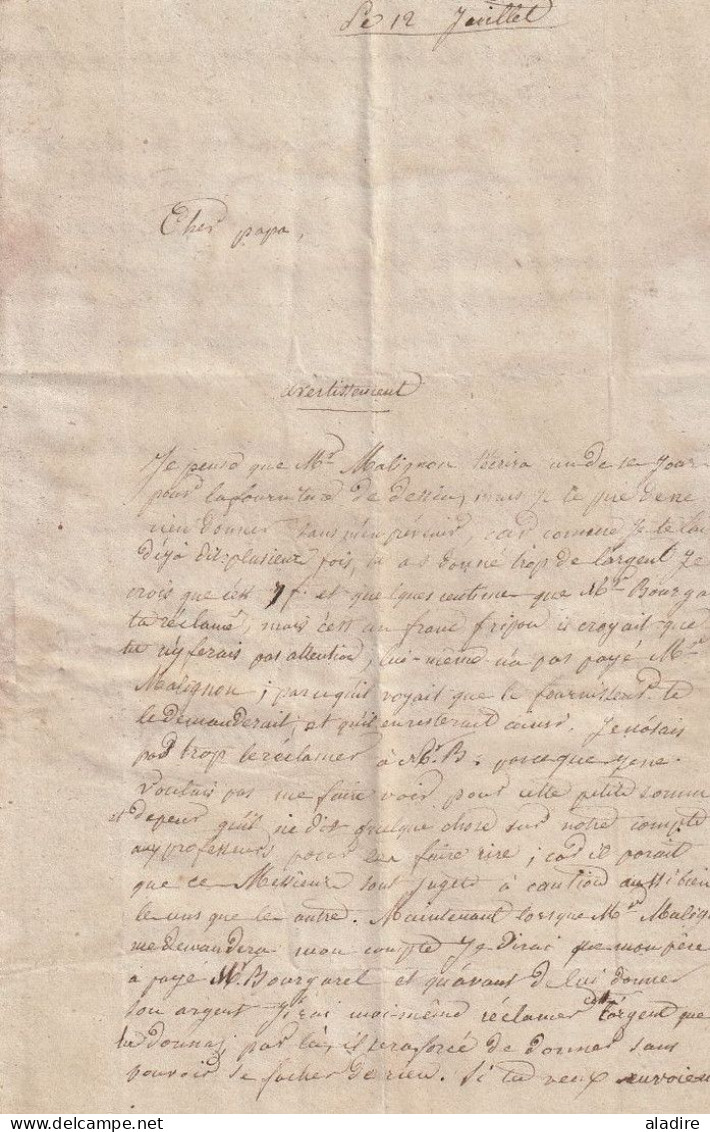 Le 12 Juillet
Cher papa,
avertissement
Je pense que Mr. Malignon t'ecrira un de se jour
pour la fourniture de dessin, mais je te prie de ne
rien donner sans m'en prévenir, car comme je te l'ai
déjà dit plusieur fois, tu as donné trop de l'argent je
crois que c'est 7 f. et quelques centime que Mr. Bourga
t'a réclamé, mais c'est un franc fripon il croyait que
tu n'y ferais pas attention, lui-même n'a pas payé Mr.
Malignon; parcequ'il voyait que le fournisseur te
le demanderait; et qu'il en resterait ainsi. Je n'osais
pas trop le réclamer à Mr. B. parceque je ne
voulais pas me faire voir pour cette petite somme
et de peur qu'il ne dit quelque chose sur notre compte
aux professeurs pour les faire rire; car il parait
que ce Messieur sont sujet à caution aussi bien
le uns que le autre. Maintenant lorsque Mr. Malig
me demandera mon compte je dirai que mon père
a payé Mr. Bourgarel et qu'avant de lui donner
son argent j'irai moi-même réclamer l'argent que
tu donnas, par là, il sera forcé de donner sans
pouvoir se facher de rien. Si tu veux envoie
aladire